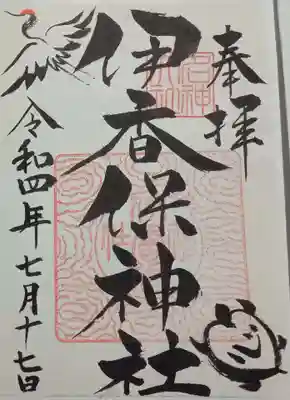 奉拝
伊香保神社
令和四年七月十七日